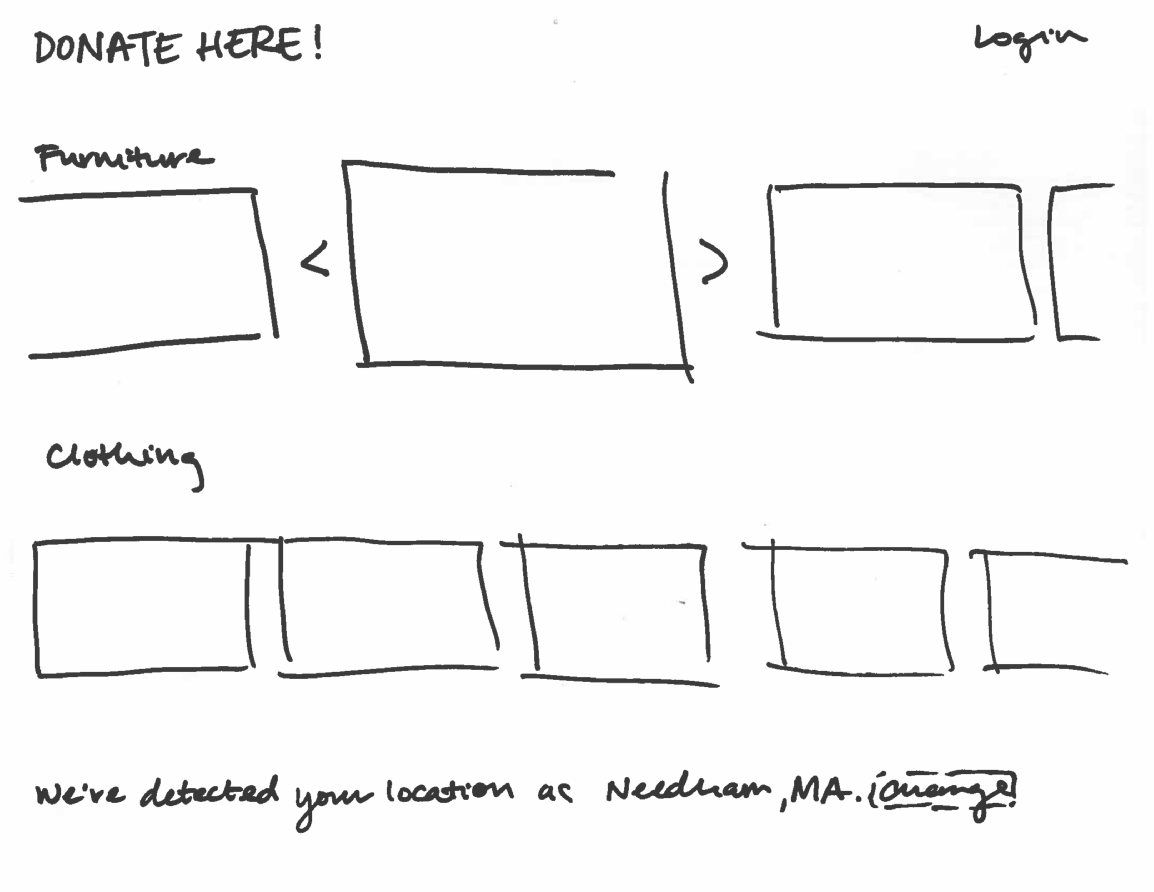 DONATE HERE!
Login
Furniture
< >
Clothing
We've detected your location as Needham, MA. change